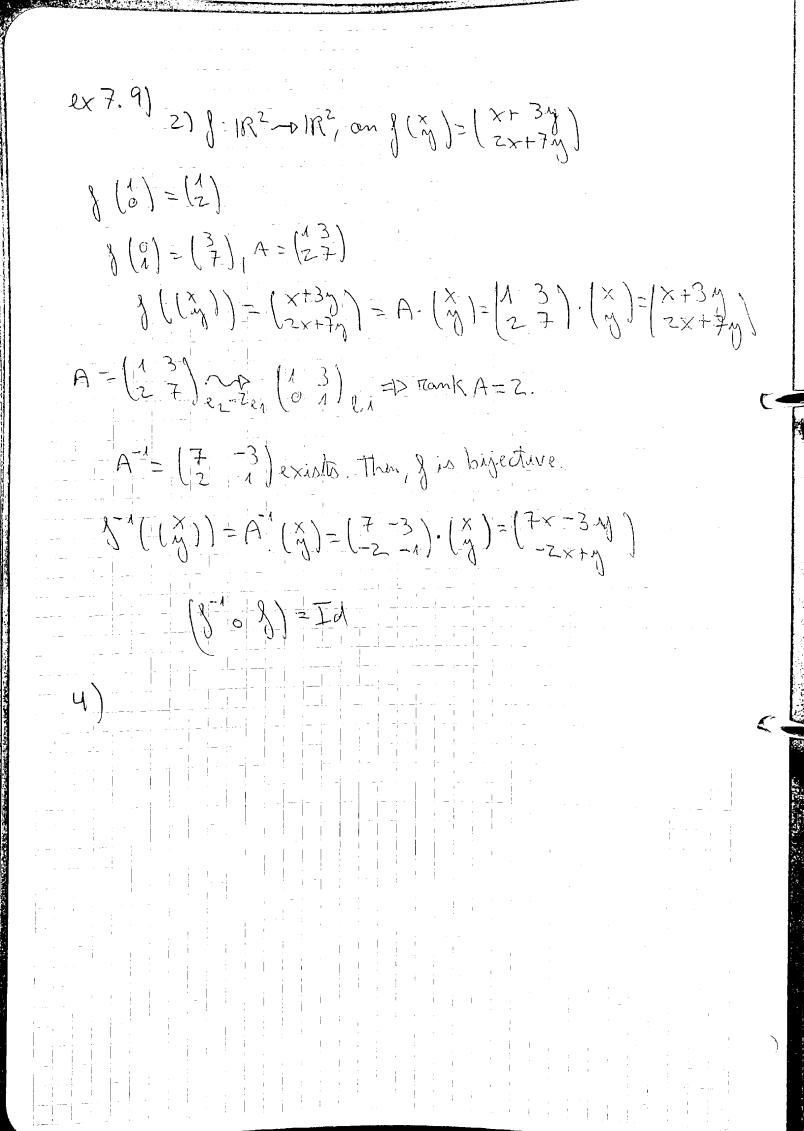 ex 7.9)
2) f: ℝ² → ℝ², on f(x y) = (x+ 3y 2x+7y)
f(1 0) = (1 2)
f(0 1) = (3 7), A = (1 3 2 7)
f((x y)) = (x+3y 2x+7y) = A·(x y) = (1 3 2 7)·(x y) = (x+3y 2x+7y)
A = (1 3 2 7) ⇝ e₂-2e₁ (1 3 0 1) l.i ⇒ rank A = 2.
A⁻¹ = (7 -3 2 1) exists. Then, f is bijective.
f⁻¹((x y)) = A⁻¹(x y) = (7 -3 -2 -1)·(x y) = (7x-3y -2x+y)
(f⁻¹ ∘ f) = Id
4)